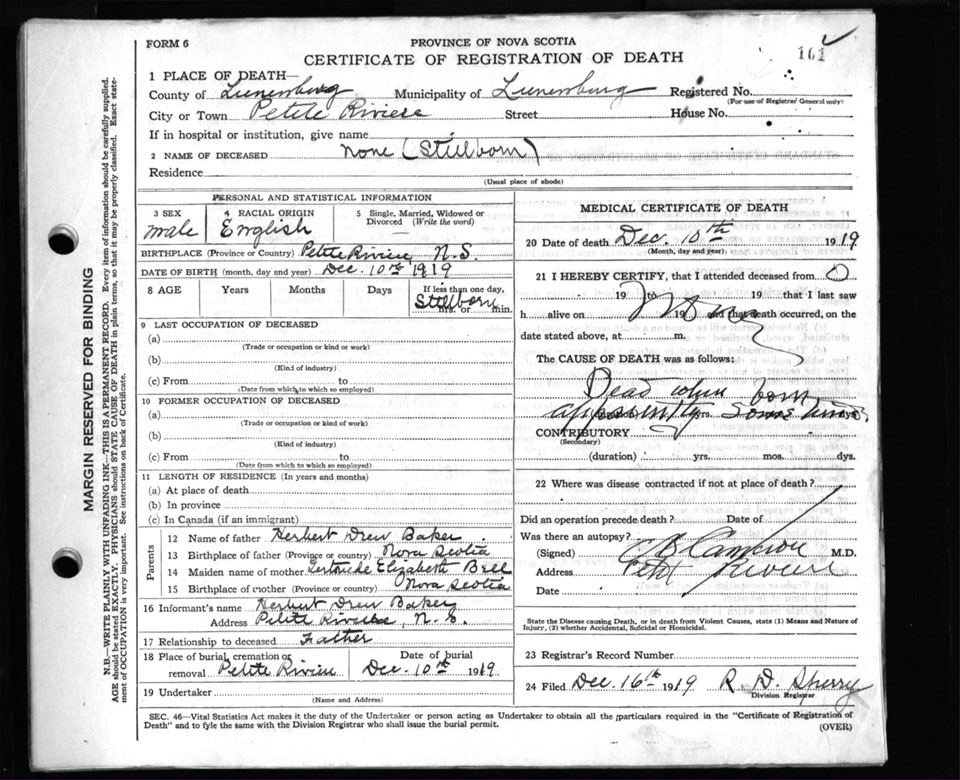 FORM 6
PROVINCE OF NOVA SCOTIA
CERTIFICATE OF REGISTRATION OF DEATH
161
1 PLACE OF DEATH—
County of Lunenburg Municipality of Lunenburg Registered No.
(For use of Registrar General only)
City or Town Petite Riviere Street House No.
If in hospital or institution, give name
2 NAME OF DECEASED None (Stillborn)
Residence
(Usual place of abode)
MARGIN RESERVED FOR BINDING
N.B.—WRITE PLAINLY WITH UNFADING INK—THIS IS A PERMANENT RECORD. Every item of information should be carefully supplied.
AGE should be stated EXACTLY. PHYSICIANS should STATE CAUSE OF DEATH in plain terms, so that it may be properly classified. Exact state-
ment of OCCUPATION is very important. See instructions on back of Certificate.
PERSONAL AND STATISTICAL INFORMATION
3 SEX 4 RACIAL ORIGIN 5 Single, Married, Widowed or
Divorced (Write the word)
male English —
BIRTHPLACE (Province or Country) Petite Riviere, N.S.
DATE OF BIRTH (month, day and year) Dec. 10th 1919
8 AGE Years Months Days If less than one day,
Stillborn
hrs. or min.
9 LAST OCCUPATION OF DECEASED
(a)
(Trade or occupation or kind or work)
(b)
(Kind of industry)
(c) From to
(Date from which to which so employed)
10 FORMER OCCUPATION OF DECEASED
(a)
(Trade or occupation or kind of work)
(b)
(Kind of industry)
(c) From to
(Date from which to which so employed)
11 LENGTH OF RESIDENCE (In years and months)
(a) At place of death
(b) In province
(c) In Canada (if an immigrant)
Parents
12 Name of father Herbert Drew Baker
13 Birthplace of father (Province or country) Nova Scotia
14 Maiden name of mother Gertrude Elizabeth Bell
15 Birthplace of mother (Province or country) Nova Scotia
16 Informant's name Herbert Drew Baker
Address Petite Riviere, N.S.
17 Relationship to deceased Father
18 Place of burial, cremation or Date of burial
removal Petite Riviere Dec. 10th 1919
19 Undertaker
(Name and Address)
MEDICAL CERTIFICATE OF DEATH
20 Date of death Dec. 10th 1919
(Month, day and year)
21 I HEREBY CERTIFY, that I attended deceased from 0
19 to 19 that I last saw
None
h alive on 19 and that death occurred, on the
date stated above, at m.
The CAUSE OF DEATH was as follows:
Dead when born
apparently some time
yrs. dys.
CONTRIBUTORY
(Secondary)
(duration) yrs. mos. dys.
22 Where was disease contracted if not at place of death?
Did an operation precede death? Date of
Was there an autopsy?
(Signed) C B Cameron M.D.
Address Petit Riviere
Date
State the Disease causing Death, or in death from Violent Causes, state (1) Means and Nature of
Injury, (2) whether Accidental, Suicidal or Homicidal.
23 Registrar's Record Number
24 Filed Dec. 16th 1919 R. D. Sperry
Division Registrar
SEC. 46—Vital Statistics Act makes it the duty of the Undertaker or person acting as Undertaker to obtain all the particulars required in the "Certificate of Registration of
Death" and to fyle the same with the Division Registrar who shall issue the burial permit.
(OVER)